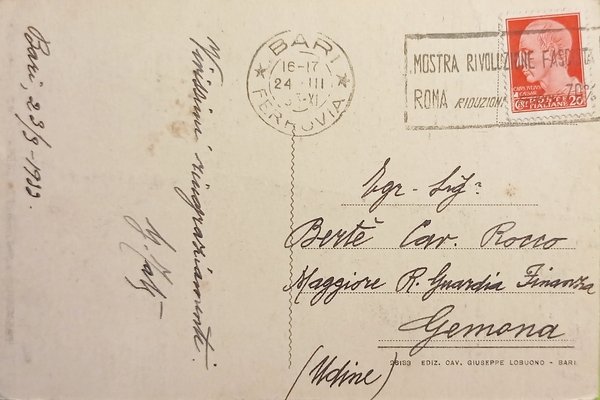 Bari, 23/3-1933.
Vivissimi ringraziamenti.
BARI
16-17
24 III
33-XI
FERROVIA
MOSTRA RIVOLUZIONE FASCISTA
ROMA RIDUZIONI 70%
POSTE
ITALIANE
Egr. Sig.r
Bertè Cav. Rocco
Maggiore R. Guardia Finanza
Gemona
(Udine)
26183 EDIZ. CAV. GIUSEPPE LOBUONO - BARI